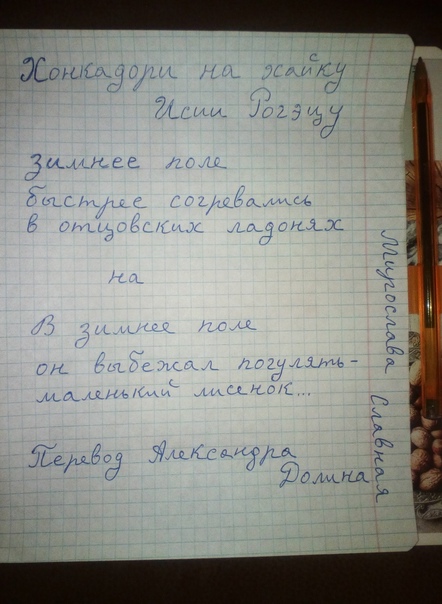 Хонкадори на хайку
Исии Рогэцу
зимнее поле
быстрее согревались
в отцовских ладонях
на
В зимнее поле
он выбежал погулять-
маленький лисенок...
Перевод Александра
Долина
Мирослава Славная